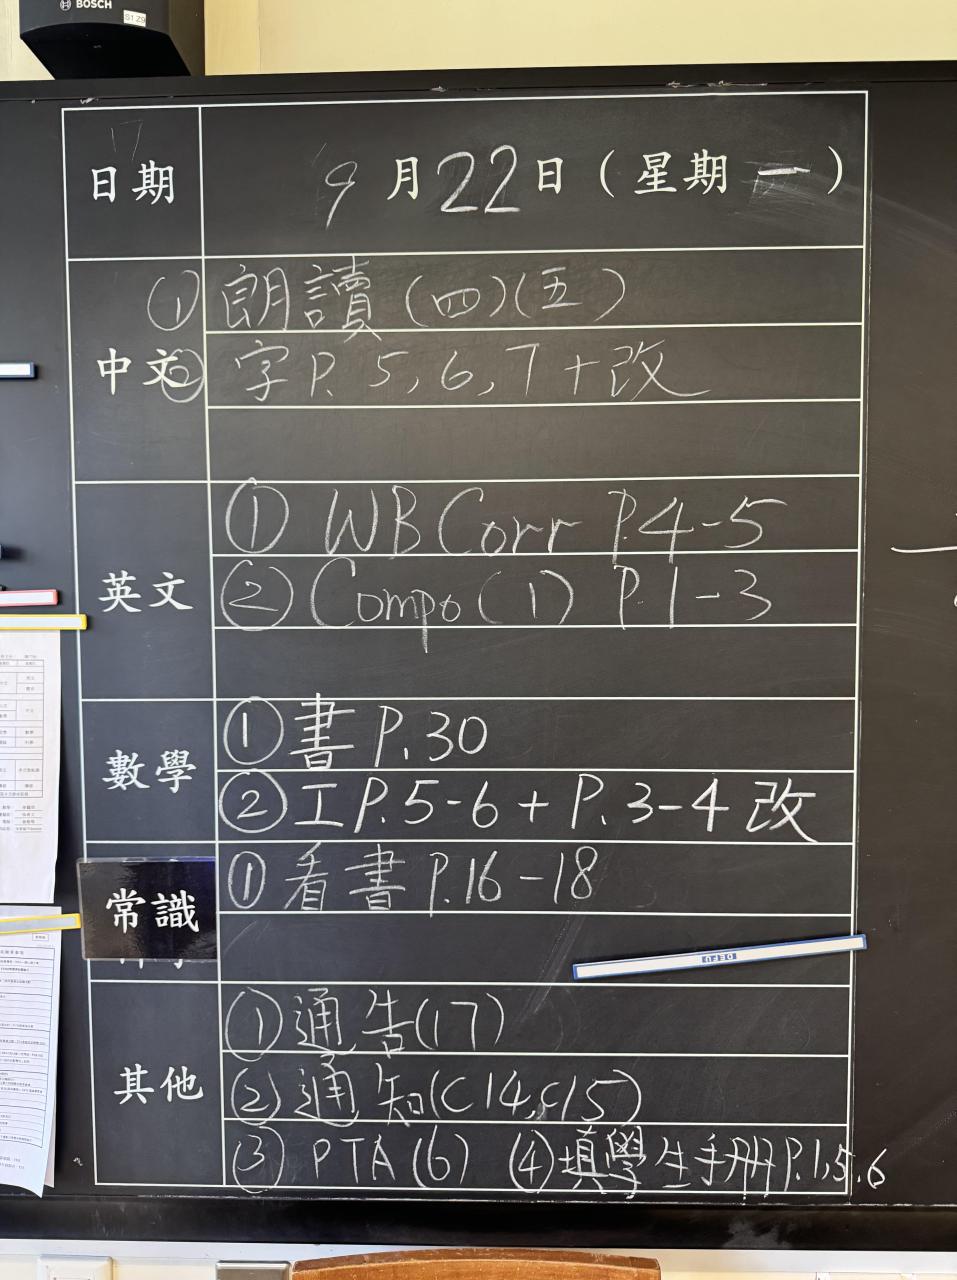 BOSCH
S1 Z9
17
日期 9月22日（星期一）
① 朗讀（四）（五）
中文 ② 字 P. 5, 6, 7 + 改
① WB Corr P.4-5
英文 ② Compo (1) P.1-3
數學 ① 書 P.30
② 工 P.5-6 + P.3-4 改
常識 ① 看書 P.16-18
DELI
① 通告(17)
其他 ② 通知(C14, C15)
③ PTA (6) ④ 填學生手冊 P.1,5,6